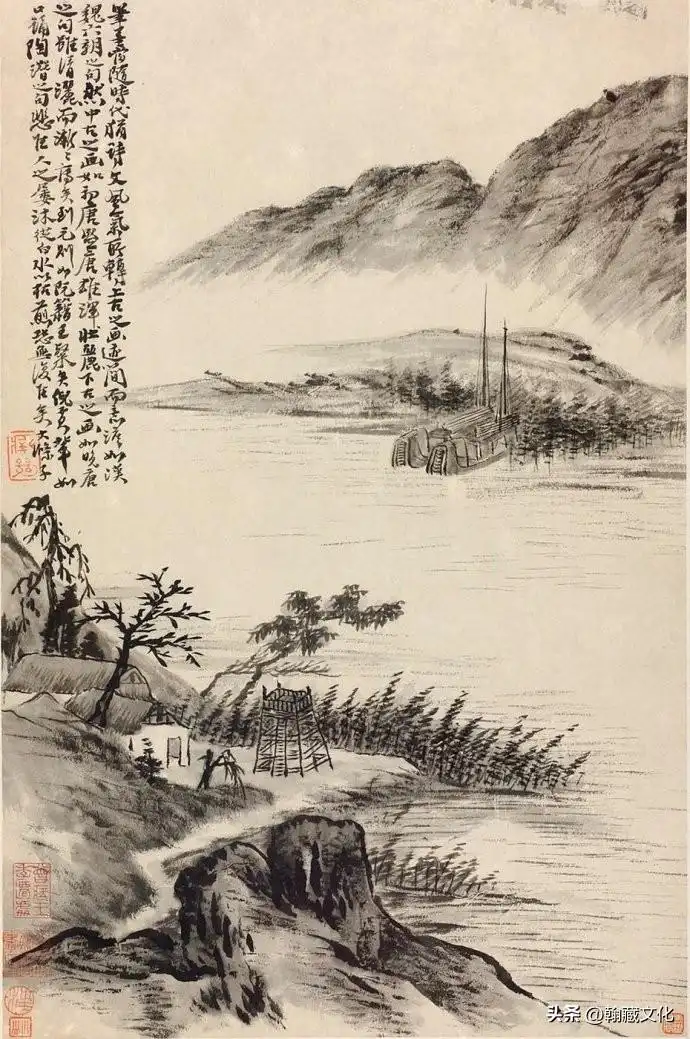 筆墨當隨時代猶詩文風氣所轉上古之画迹簡而意淡如漢
魏六朝之句然中古之画如初唐盛唐雄渾壯麗下古之画如晚唐
之句雖清灑而漸漸薄矣到元則如阮籍王粲矣倪黃輩如
口誦陶潛之句悲佳人之屢沐從白水以枯煎恐無復佳矣大滌子
头条 @翰藏文化